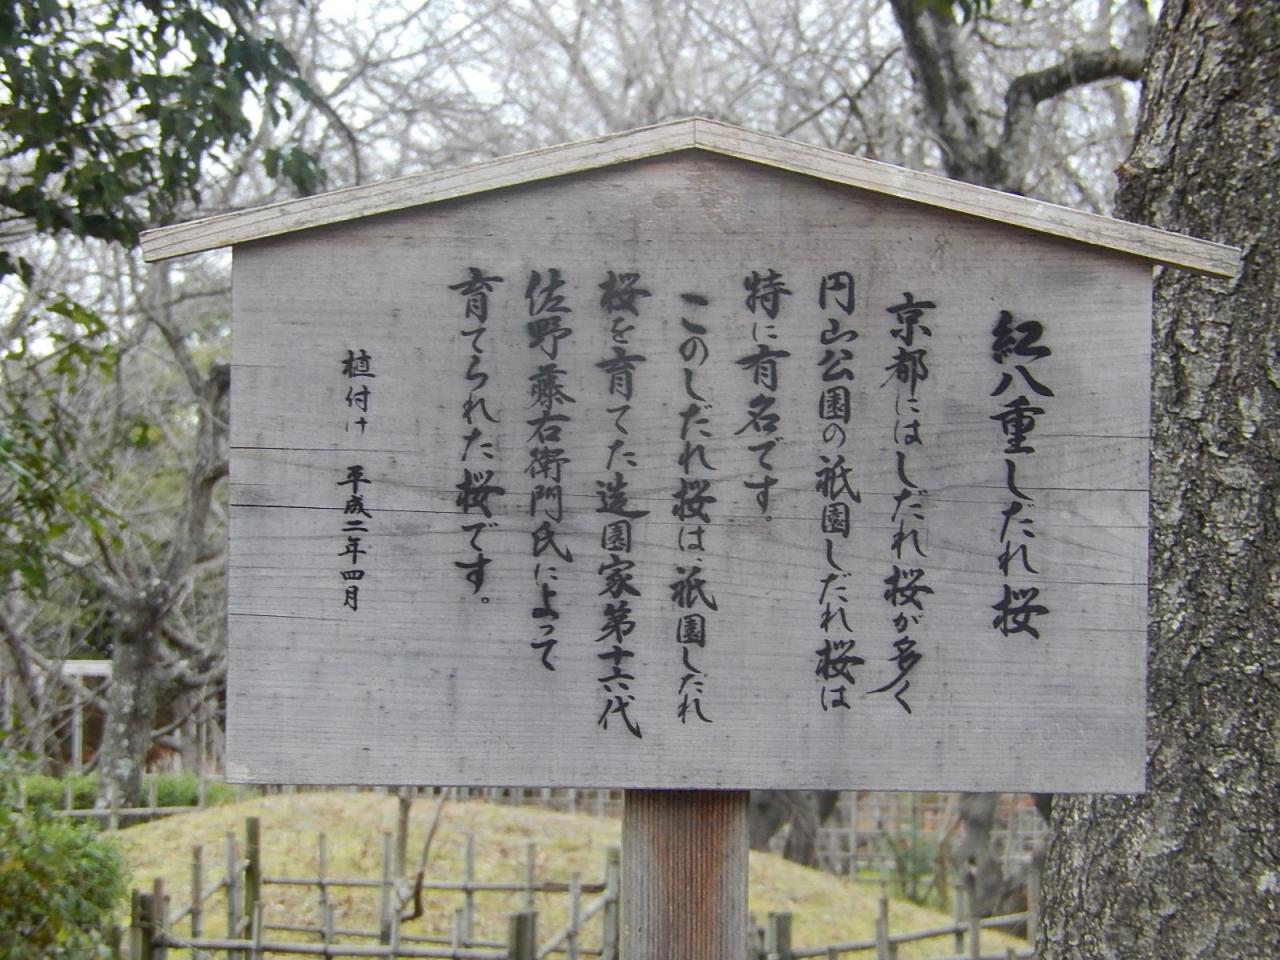 紅八重しだれ桜
京都にはしだれ桜が多く
円山公園の祇園しだれ桜は
特に有名です。
このしだれ桜は、祇園しだれ
桜を育てた造園家第十六代
佐野藤右衛門氏によって
育てられた桜です。
植付け 平成二年四月